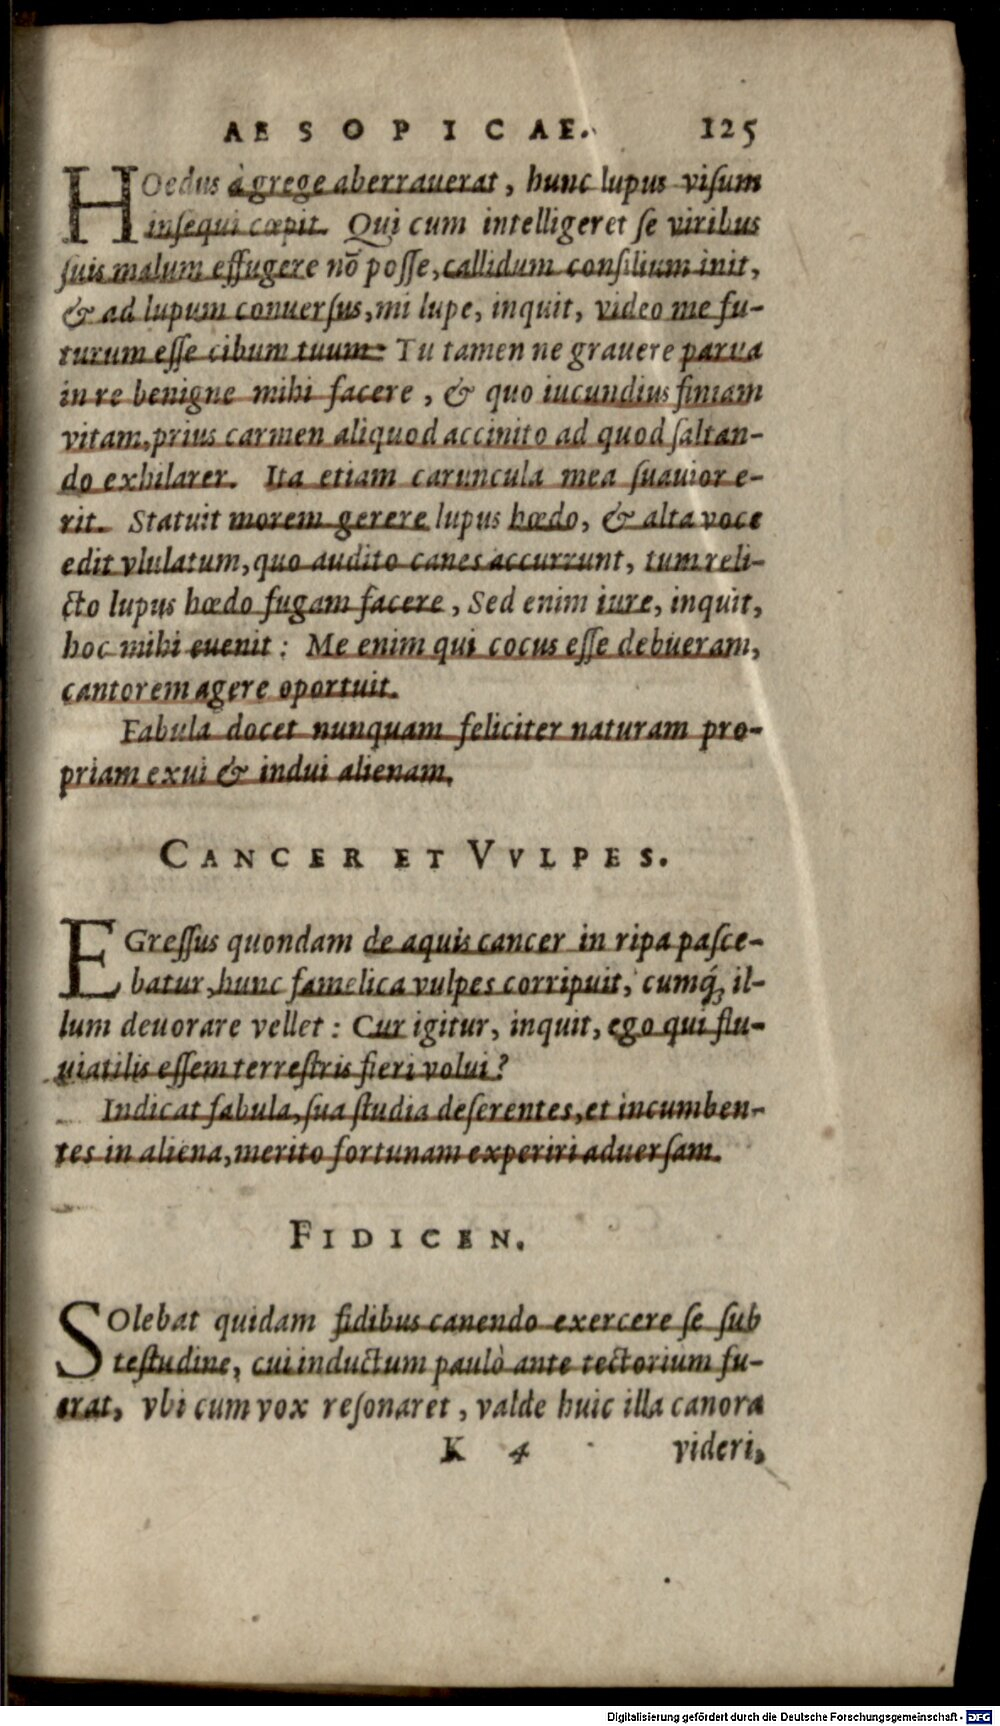 AESOPICAE. 125
HOedus à grege aberrauerat, hunc lupus visum
insequi cœpit. Qui cum intelligeret se viribus
suis malum effugere nō posse, callidum consilium init,
& ad lupum conuersus, mi lupe, inquit, video me fu-
turum esse cibum tuum: Tu tamen ne grauere parua
in re benigne mihi facere, & quo iucundius finiam
vitam, prius carmen aliquod accinito ad quod saltan-
do exhilarer. Ita etiam caruncula mea suauior e-
rit. Statuit morem gerere lupus hœdo, & alta voce
edit vlulatum, quo audito canes accurrunt, tum reli-
cto lupus hœdo fugam facere, Sed enim iure, inquit,
hoc mihi euenit: Me enim qui cocus esse debueram,
cantorem agere oportuit.
Fabula docet nunquam feliciter naturam pro-
priam exui & indui alienam.
CANCER ET VVLPES.
EGressus quondam de aquis cancer in ripa pasce-
batur, hunc famelica vulpes corripuit, cumq́; il-
lum deuorare vellet: Cur igitur, inquit, ego qui flu-
uiatilis essem terrestris fieri volui?
Indicat fabula, sua studia deserentes, et incumben-
tes in aliena, merito fortunam experiri aduersam.
FIDICEN.
SOlebat quidam fidibus canendo exercere se sub
testudine, cui inductum paulò ante tectorium fu-
erat, vbi cum vox resonaret, valde huic illa canora
K 4 videri,
Digitalisierung gefördert durch die Deutsche Forschungsgemeinschaft - DFG